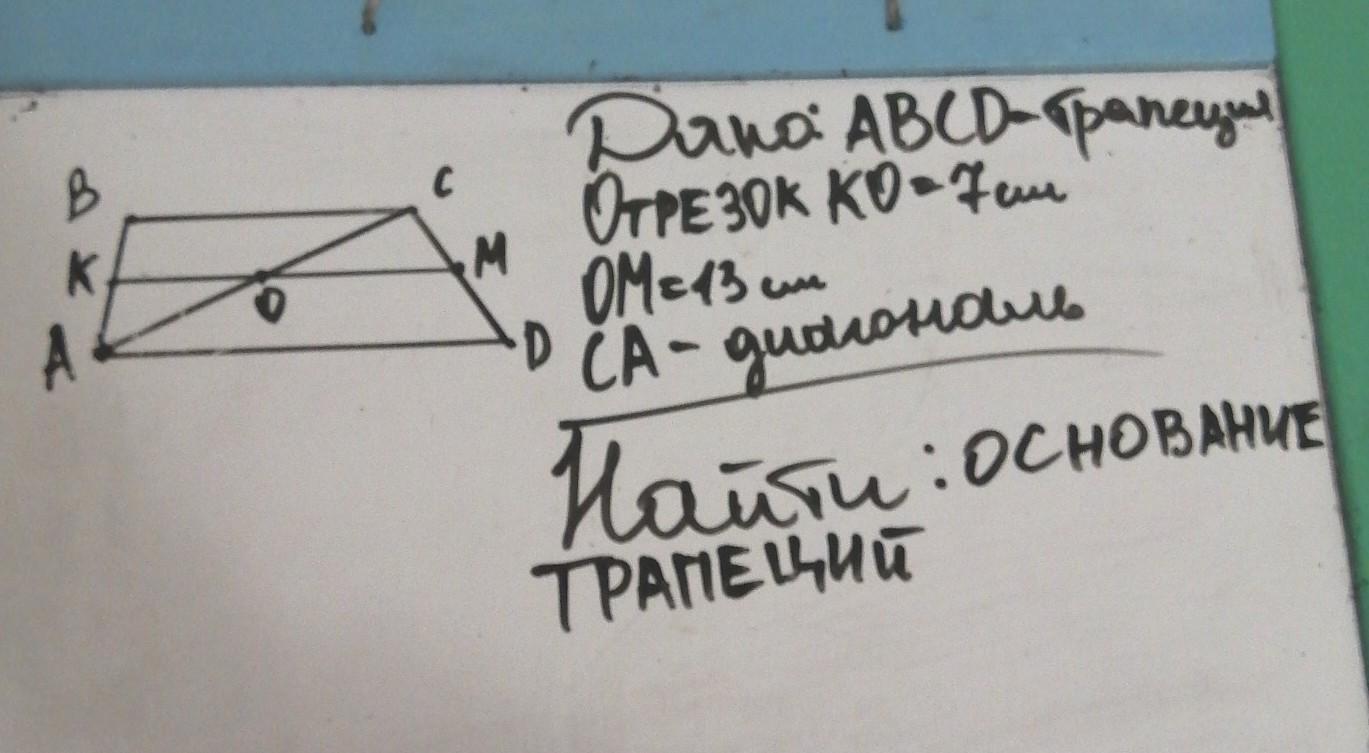 B
C
K
M
O
A
D
Дано: ABCD-трапеция
ОТРЕЗОК KO=7 см
OM=13 см
CA- диагональ
Найти: ОСНОВАНИЕ
ТРАПЕЦИЙ